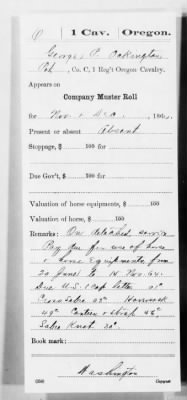 O | 1 Cav. | Oregon.
George P. Oakington
Pvt, Co. C, 1 Reg't Oregon Cavalry.
Appears on
Company Muster Roll
for Nov & Dec, 186
Present or absent Absent
Stoppage, $ 100 for
Due Gov't, $ 100 for
Valuation of horse equipments, $ 100
Valuation of horse, $ 100
Remarks: On detached service
Pay due for use of horse
& horse equipments from
29 June to 14 Nov. 64.
Due U.S. 1 Cap letter 01c
Haversack
Canteen & strap
Sabre Knot
Book mark:
Washington
Copyist.